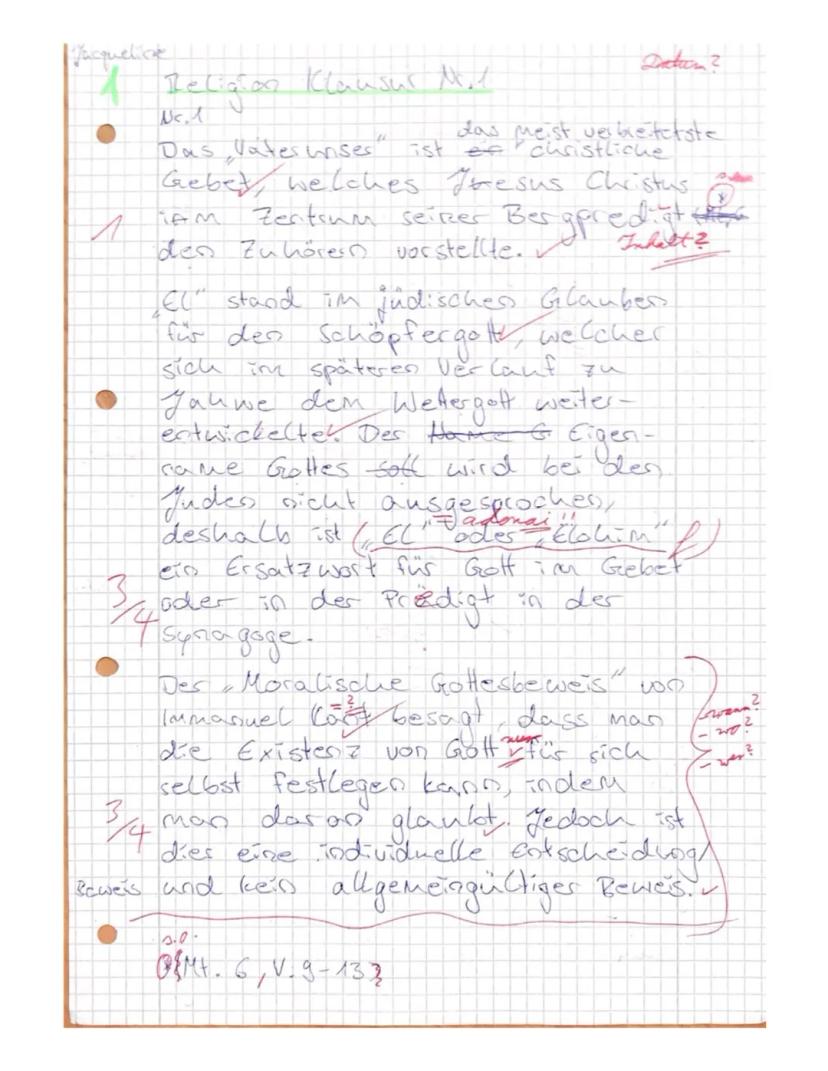 Jacqueline
Datum?
1 Religion Klausur Nr. 1
Nr. 1
das meist verbreitetste
Das "Vaterunser" ist christliche
Gebet, welches Jesus Christus
1 im Zentrum seiner Bergpredigt
den Zuhörern vorstellte. Inhalt?
"El" stand im jüdischen Glauben
für den Schöpfergott, welcher
sich im späteren Verlauf zu
Jahwe dem Wettergott weiter-
entwickelte. Der Eigen-
name Gottes wird bei den
Juden nicht ausgesprochen,
= adonai!!
deshalb ist ("El" oder "Elohim" f)
ein Ersatzwort für Gott im Gebet
3/4 oder in der Predigt in der
Synagoge.
Der "Moralische Gottesbeweis" von
= ?
Immanuel Kant besagt, dass man
- wann?
- wo?
nur
die Existenz von Gott für sich
- wer?
selbst festlegen kann, indem
3/4 man daran glaubt. Jedoch ist
dies eine individuelle Entscheidung
Beweis und kein allgemeingültiger Beweis.
s.o.
{Mt. 6, V. 9-13}